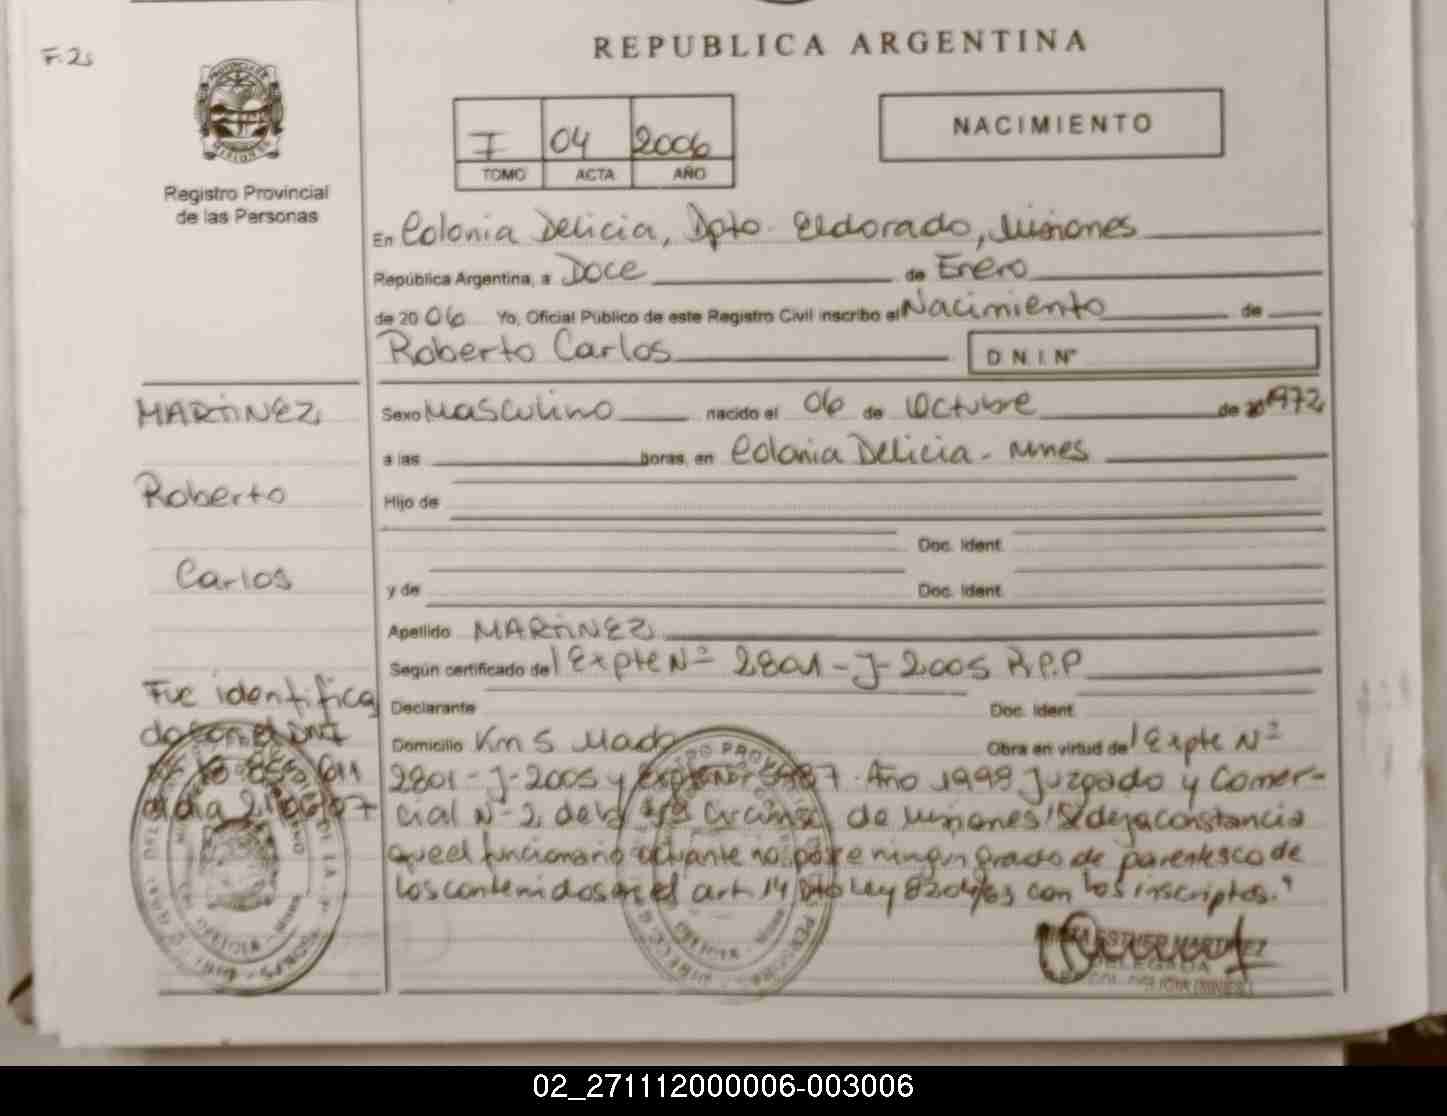 F. 2s
REPUBLICA ARGENTINA
PROVINCIA DE
MISIONES
I 04 2006
TOMO ACTA AÑO
NACIMIENTO
Registro Provincial
de las Personas
En Colonia Delicia, Dpto. Eldorado, Misiones
República Argentina, a Doce de Enero
de 2006 Yo, Oficial Público de este Registro Civil inscribo el Nacimiento de
Roberto Carlos D.N.I. Nº
MARTINEZ
Sexo Masculino nacido el 06 de Octubre de 1972
a las horas, en Colonia Delicia - Mnes
Roberto
Hijo de
Doc. Ident.
Carlos
y de Doc. Ident.
Apellido MARTINEZ
Según certificado del Expte Nº 2801-J-2005 R.P.P
Fue identifica
Declarante Doc. Ident.
do con el DNI
Domicilio Km 5 Obra en virtud del Expte Nº
2801-J-2005 y Año 1999 Juzgado y Comer-
el día
cial Nº 2, de la de Misiones "Se deja constancia
que el funcionario actuante no posee ningun grado de parentesco de
los contenidos en el art. 14 Dto Ley 8204/63 con los inscriptos."
DELEGADA
COL. DELICIA (MNES)
02_271112000006-003006